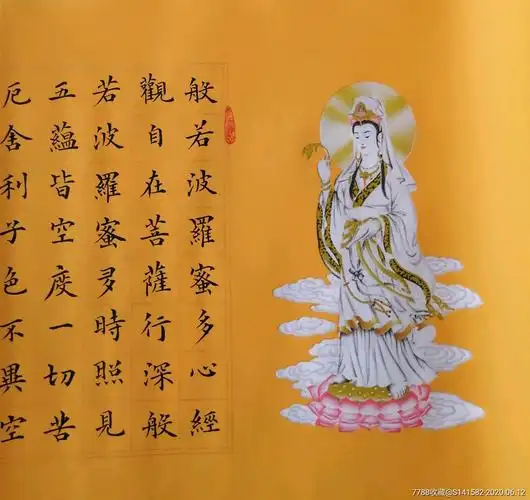 般若波羅蜜多心經
觀自在菩薩行深般
若波羅蜜多時照見
五蘊皆空度一切苦
厄舍利子色不異空
7788收藏@S141582 2020.06.12